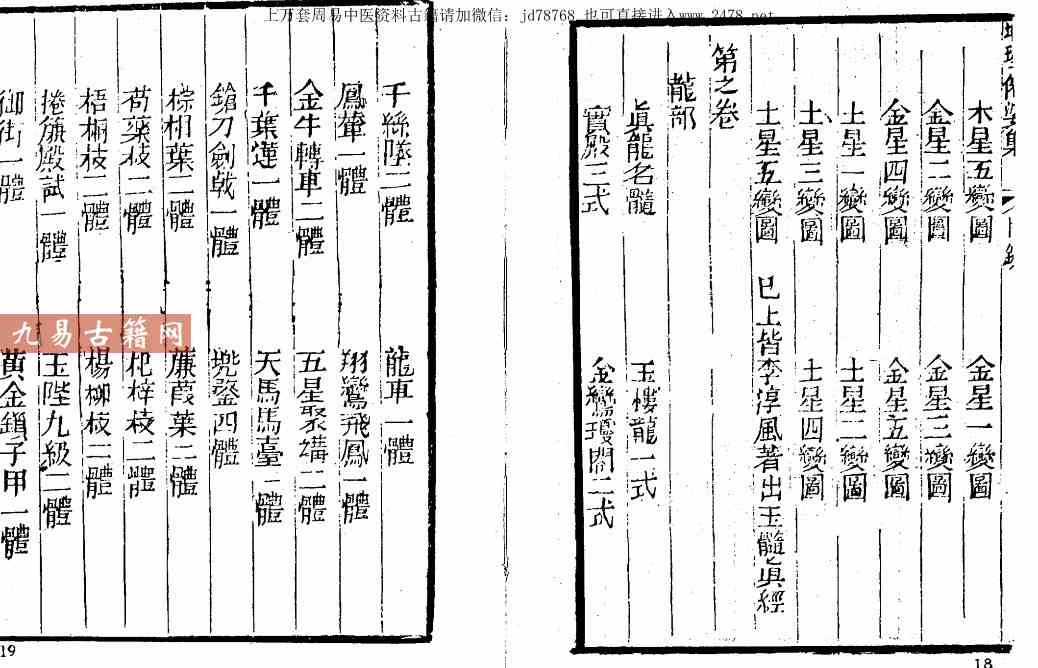 上万套周易中医资料古籍请加微信：jd78768 也可直接进入www.2478.net
木星五變圖　金星一變圖
金星二變圖　金星三變圖
金星四變圖　金星五變圖
土星一變圖　土星二變圖
土星三變圖　土星四變圖
土星五變圖　巳上皆李淳風著出玉髓眞經
第之卷
龍部
眞龍名髓　玉樓龍一式
寶殿三式　金鸞瓊閣二式
18
千絲墜二體　龍車一體
鳳輦一體　翔鸞飛鳳一體
金牛轉車二體　五星聚講二體
千葉蓮一體　天馬馬臺一體
鎗刀劍戟一體　兜鍪四體
棕櫚葉一體　蒹葭葉二體
荷葉枝二體　杞梓枝二體
梧桐枝二體　楊柳枝三體
捲簾殿試一體　玉陛九級二體
御街一體　黃金鎖子甲一體
九易古籍网
19